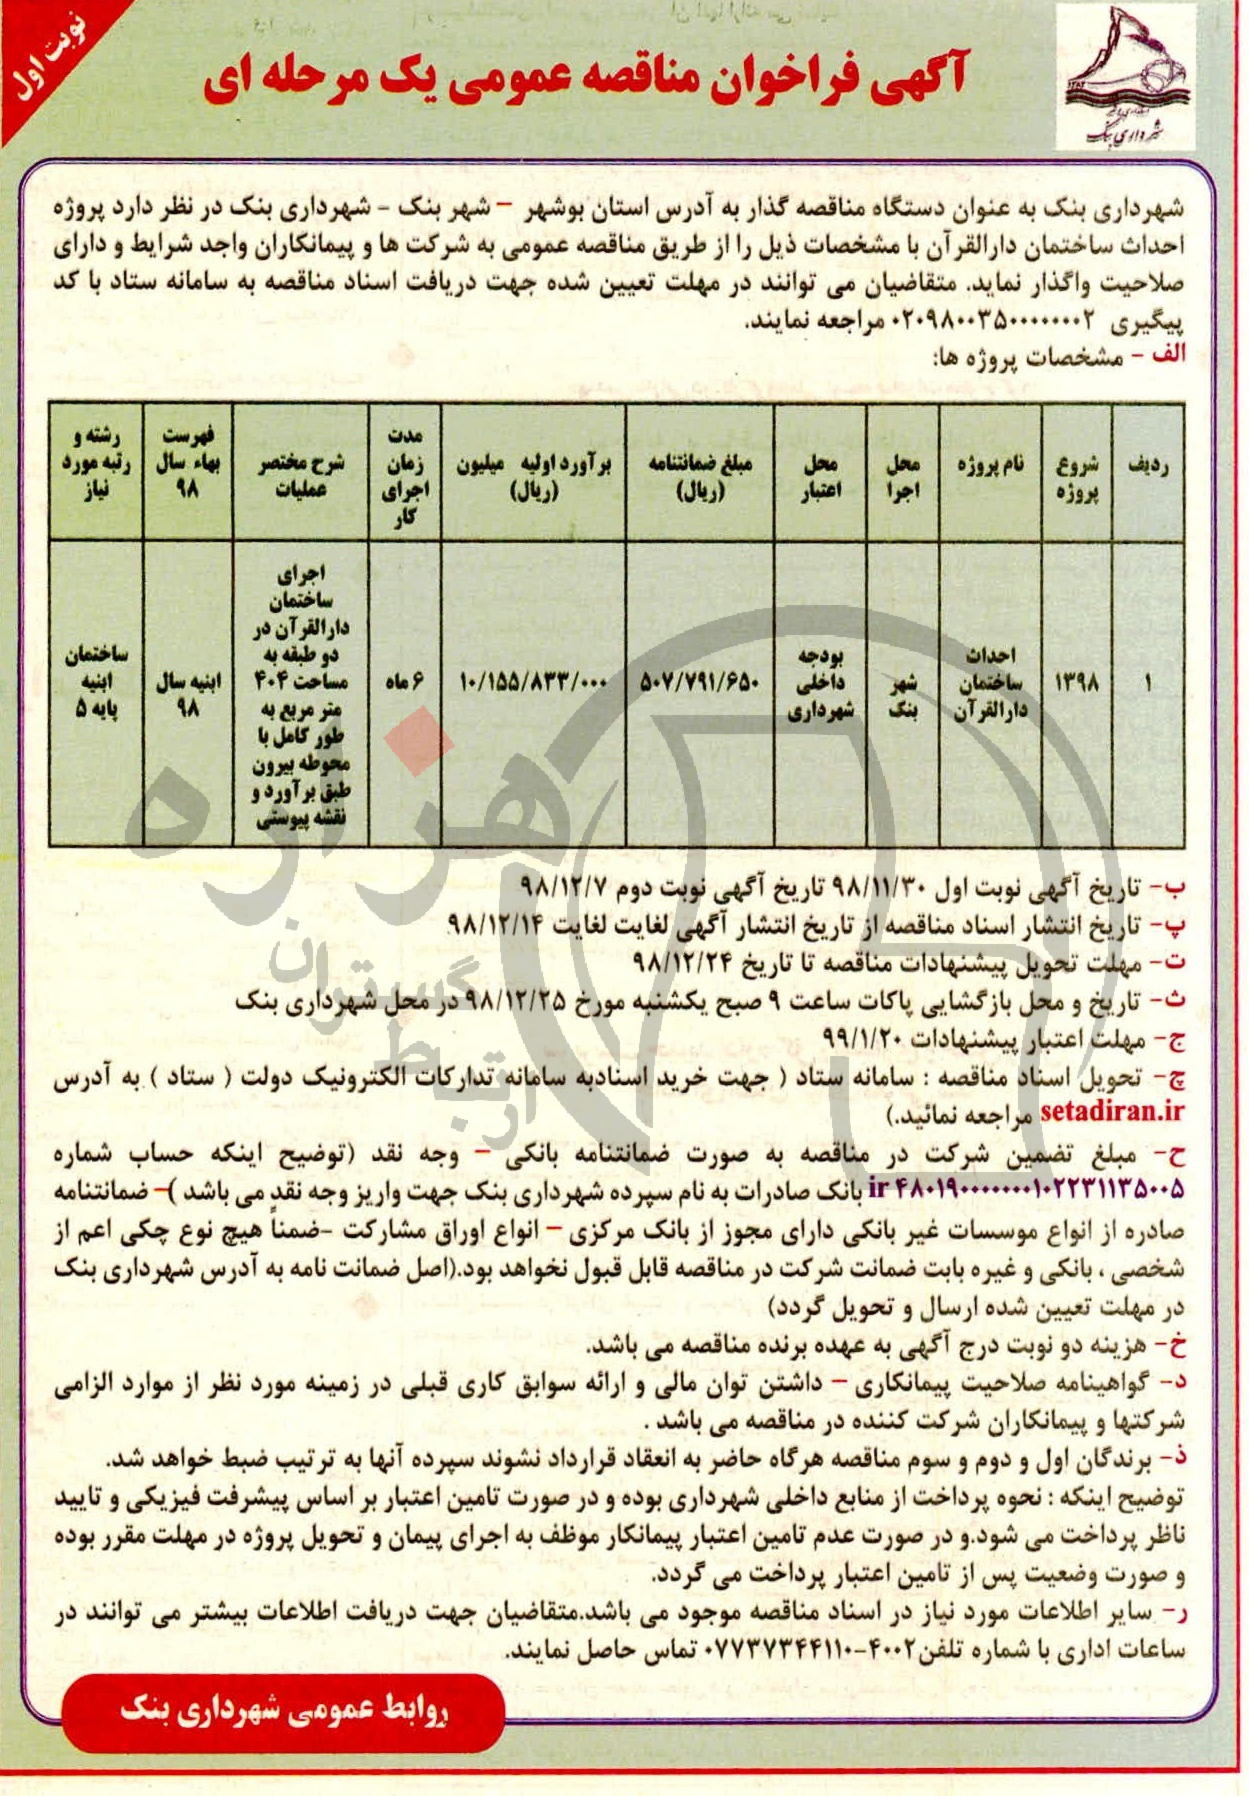 نوبت اول
شهرداری بنک
آگهی فراخوان مناقصه عمومی یک مرحله ای
شهرداری بنک به عنوان دستگاه مناقصه گذار به آدرس استان بوشهر – شهر بنک - شهرداری بنک در نظر دارد پروژه
احداث ساختمان دارالقرآن با مشخصات ذیل را از طریق مناقصه عمومی به شرکت ها و پیمانکاران واجد شرایط و دارای
صلاحیت واگذار نماید. متقاضیان می توانند در مهلت تعیین شده جهت دریافت اسناد مناقصه به سامانه ستاد با کد
پیگیری ۰۲۰۹۸۰۰۳۵۰۰۰۰۰۰۰۲ مراجعه نمایند.
الف - مشخصات پروژه ها:
ردیف | شروع پروژه | نام پروژه | محل اجرا | محل اعتبار | مبلغ ضمانتنامه (ریال) | برآورد اولیه میلیون (ریال) | مدت زمان اجرای کار | شرح مختصر عملیات | فهرست بهاء سال ۹۸ | رشته و رتبه مورد نیاز
۱ | ۱۳۹۸ | احداث ساختمان دارالقرآن | شهر بنک | بودجه داخلی شهرداری | ۵۰۷/۷۹۱/۶۵۰ | ۱۰/۱۵۵/۸۳۳/۰۰۰ | ۶ ماه | اجرای ساختمان دارالقرآن در دو طبقه به مساحت ۴۰۴ متر مربع به طور کامل با محوطه بیرون طبق برآورد و نقشه پیوستی | ابنیه سال ۹۸ | ساختمان ابنیه پایه ۵
ب- تاریخ آگهی نوبت اول ۹۸/۱۱/۳۰ تاریخ آگهی نوبت دوم ۹۸/۱۲/۷
پ- تاریخ انتشار اسناد مناقصه از تاریخ انتشار آگهی لغایت لغایت ۹۸/۱۲/۱۴
ت- مهلت تحویل پیشنهادات مناقصه تا تاریخ ۹۸/۱۲/۲۴
ث- تاریخ و محل بازگشایی پاکات ساعت ۹ صبح یکشنبه مورخ ۹۸/۱۲/۲۵ در محل شهرداری بنک
ج- مهلت اعتبار پیشنهادات ۹۹/۱/۲۰
چ- تحویل اسناد مناقصه : سامانه ستاد ( جهت خرید اسنادبه سامانه تدارکات الکترونیک دولت ( ستاد ) به آدرس
setadiran.ir مراجعه نمائید.)
ح- مبلغ تضمین شرکت در مناقصه به صورت ضمانتنامه بانکی – وجه نقد (توضیح اینکه حساب شماره
ir ۴۸۰۱۹۰۰۰۰۰۰۰۰۱۰۲۲۳۱۱۳۵۰۰۵ بانک صادرات به نام سپرده شهرداری بنک جهت واریز وجه نقد می باشد )– ضمانتنامه
صادره از انواع موسسات غیر بانکی دارای مجوز از بانک مرکزی – انواع اوراق مشارکت -ضمناً هیچ نوع چکی اعم از
شخصی ، بانکی و غیره بابت ضمانت شرکت در مناقصه قابل قبول نخواهد بود.(اصل ضمانت نامه به آدرس شهرداری بنک
در مهلت تعیین شده ارسال و تحویل گردد)
خ- هزینه دو نوبت درج آگهی به عهده برنده مناقصه می باشد.
د- گواهینامه صلاحیت پیمانکاری – داشتن توان مالی و ارائه سوابق کاری قبلی در زمینه مورد نظر از موارد الزامی
شرکتها و پیمانکاران شرکت کننده در مناقصه می باشد .
ذ- برندگان اول و دوم و سوم مناقصه هرگاه حاضر به انعقاد قرارداد نشوند سپرده آنها به ترتیب ضبط خواهد شد.
توضیح اینکه : نحوه پرداخت از منابع داخلی شهرداری بوده و در صورت تامین اعتبار بر اساس پیشرفت فیزیکی و تایید
ناظر پرداخت می شود.و در صورت عدم تامین اعتبار پیمانکار موظف به اجرای پیمان و تحویل پروژه در مهلت مقرر بوده
و صورت وضعیت پس از تامین اعتبار پرداخت می گردد.
ر- سایر اطلاعات مورد نیاز در اسناد مناقصه موجود می باشد.متقاضیان جهت دریافت اطلاعات بیشتر می توانند در
ساعات اداری با شماره تلفن۴۰۰۲-۰۷۷۳۷۳۴۴۱۱۰ تماس حاصل نمایند.
روابط عمومی شهرداری بنک
هزاره
گستران
ارتباط